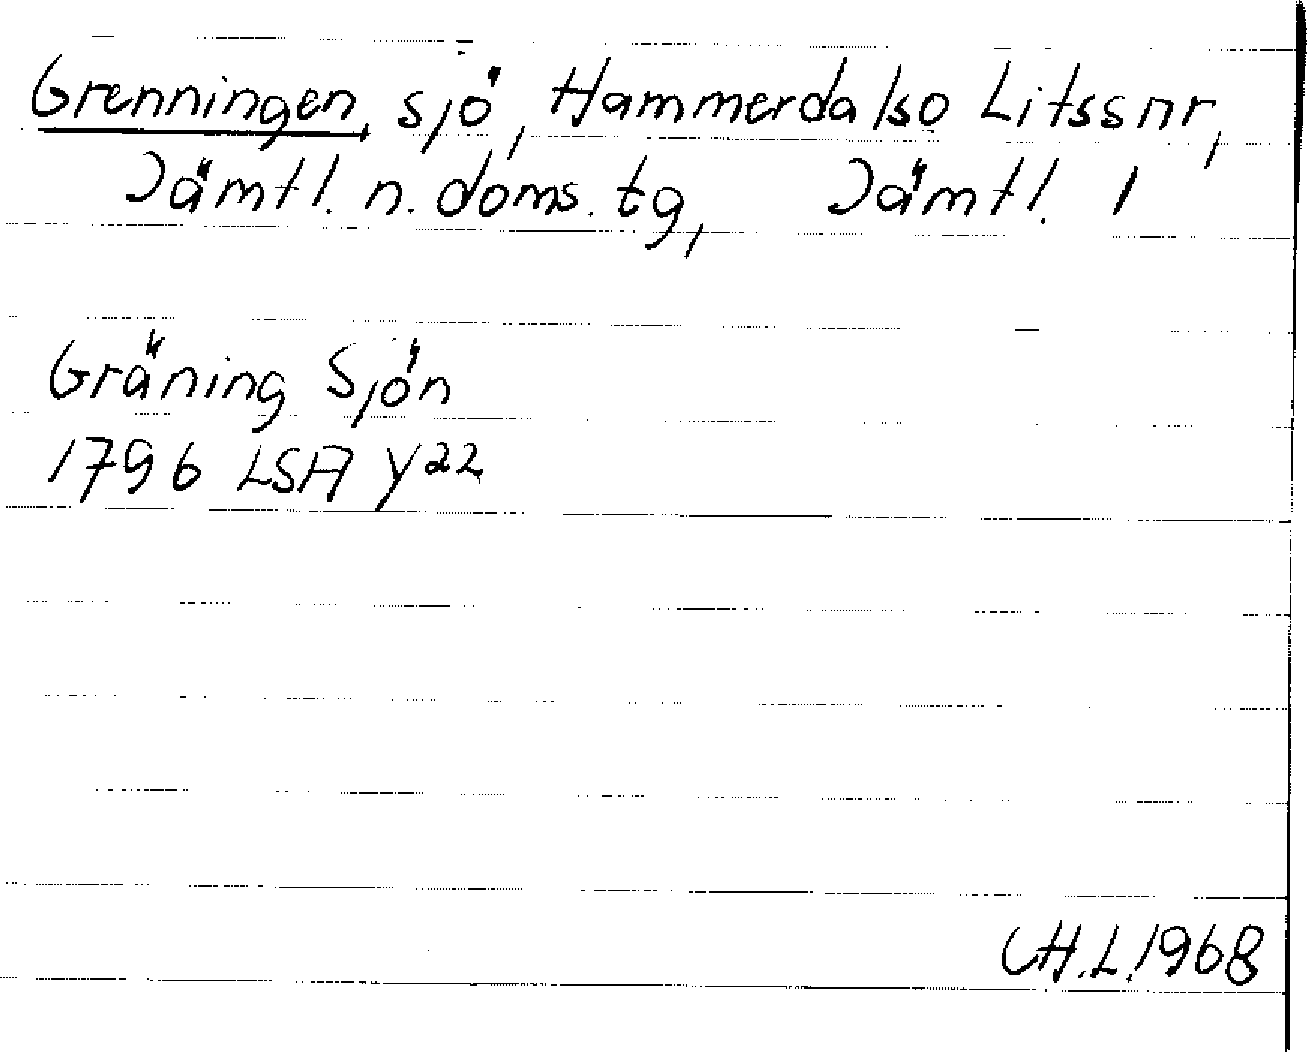 Grenningen, sjö, Hammerdalso Litssnr,
Jämtl. n. doms. tg, Jämtl. l
Gräning Sjön
1796 LSA Y22
CH.L.1968